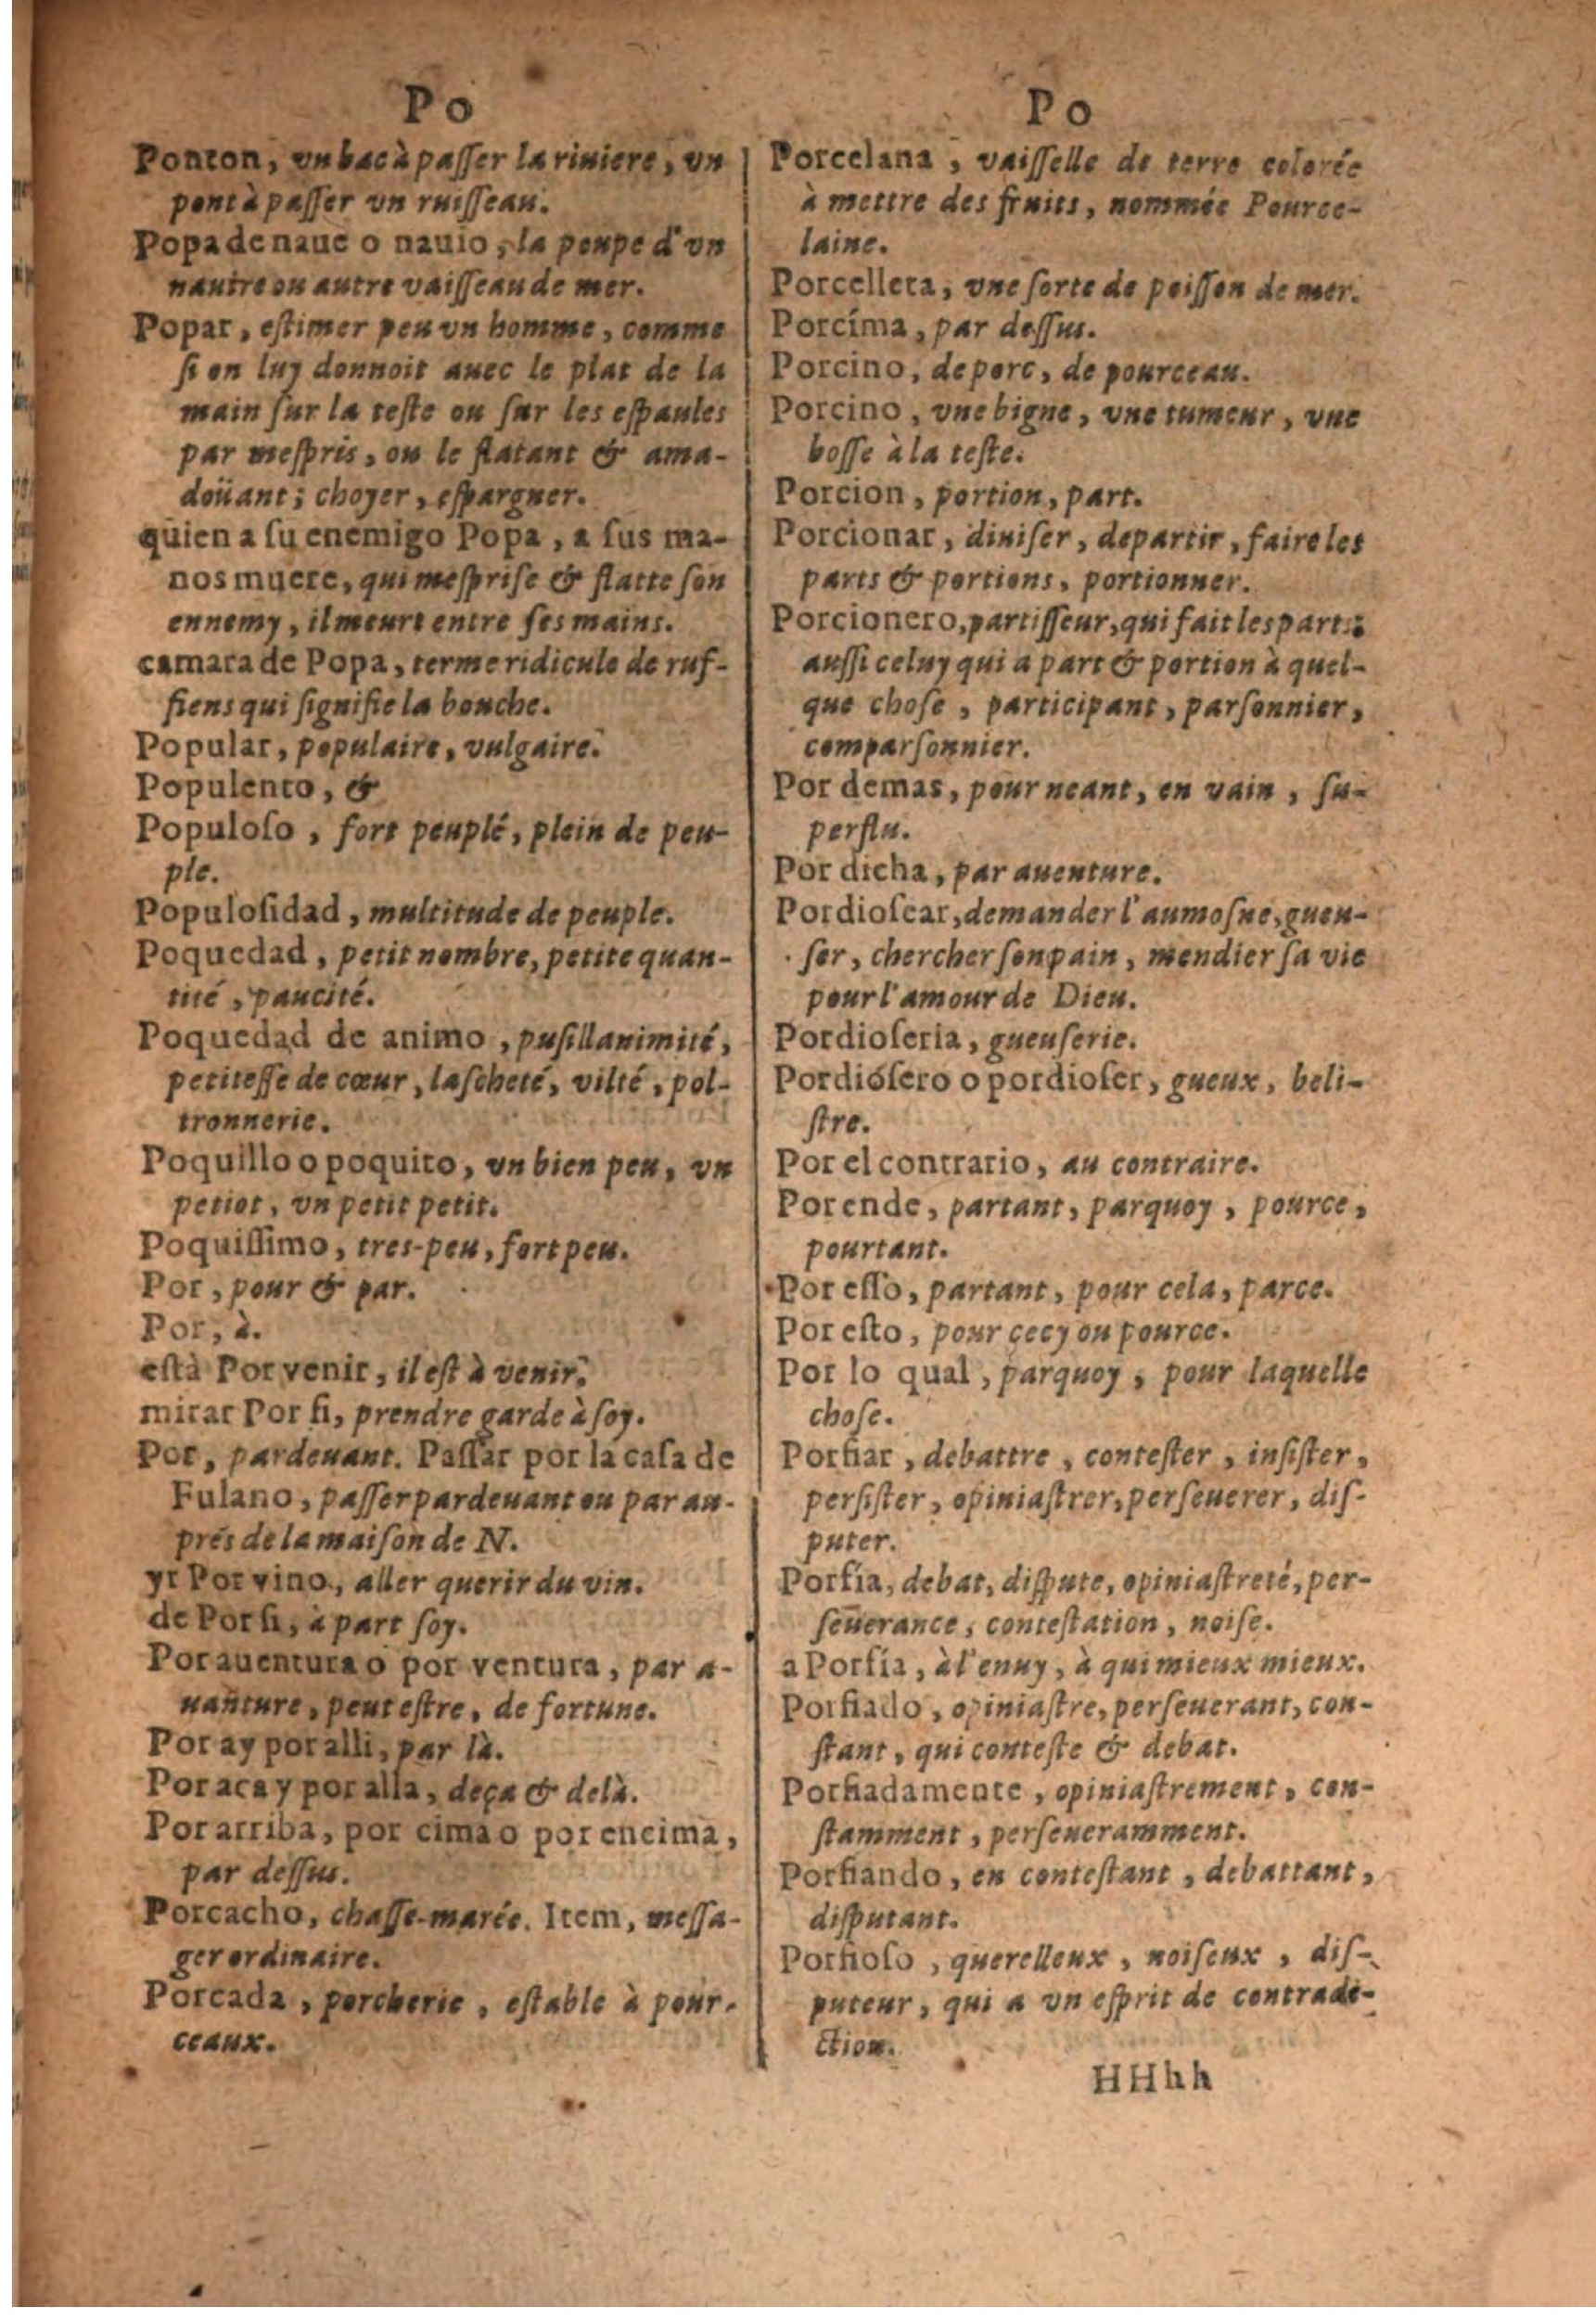 Po
Ponton, vn bac à paſſer la riuiere, vn
pont à paſſer vn ruiſſeau.
Popa de naue o nauio, la poupe d'vn
nauire ou autre vaiſſeau de mer.
Popar, eſtimer peu vn homme, comme
ſi on luy donnoit auec le plat de la
main ſur la teſte ou ſur les eſpaules
par meſpris, ou le flatant & ama-
doüant; choyer, eſpargner.
quien a ſu enemigo Popa, a ſus ma-
nos muere, qui meſpriſe & flatte ſon
ennemy, il meurt entre ſes mains.
camara de Popa, terme ridicule de ruf-
fiens qui ſignifie la bouche.
Popular, populaire, vulgaire.
Populento, &
Populoſo, fort peuplé, plein de peu-
ple.
Populoſidad, multitude de peuple.
Poquedad, petit nombre, petite quan-
tité, paucité.
Poquedad de animo, puſillanimité,
petiteſſe de cœur, laſcheté, vilté, pol-
tronnerie.
Poquillo o poquito, vn bien peu, vn
petiot, vn petit petit.
Poquiſſimo, tres-peu, fort peu.
Por, pour & par.
Por, à.
està Por venir, il eſt à venir.
mirar Por ſi, prendre garde à ſoy.
Por, pardeuant. Paſſar por la caſa de
Fulano, paſſer pardeuant ou par au-
prés de la maiſon de N.
yr Por vino, aller querir du vin.
de Por ſi, à part ſoy.
Por auentura o por ventura, par a-
uanture, peut eſtre, de fortune.
Por ay por alli, par là.
Por aca y por alla, deça & delà.
Por arriba, por cima o por encima,
par deſſus.
Porcacho, chaſſe-marée. Item, meſſa-
ger ordinaire.
Porcada, porcherie, eſtable à pour-
ceaux.
Po
Porcelana, vaiſſelle de terre colorée
à mettre des fruits, nommée Pource-
laine.
Porcelleta, vne ſorte de poiſſon de mer.
Porcíma, par deſſus.
Porcino, de porc, de pourceau.
Porcino, vne bigne, vne tumeur, vne
boſſe à la teſte.
Porcion, portion, part.
Porcionar, diuiſer, departir, faire les
parts & portions, portionner.
Porcionero, partiſſeur, qui fait les parts;
auſſi celuy qui a part & portion à quel-
que choſe, participant, parſonnier,
comparſonnier.
Por demas, pour neant, en vain, ſu-
perflu.
Por dicha, par auenture.
Pordioſear, demander l'aumoſne, gueu-
ſer, chercher ſon pain, mendier ſa vie
pour l'amour de Dieu.
Pordioſeria, gueuſerie.
Pordióſero o pordioſer, gueux, beli-
ſtre.
Por el contrario, au contraire.
Por ende, partant, parquoy, pource,
pourtant.
Por eſſo, partant, pour cela, parce.
Por eſto, pour cecy ou pource.
Por lo qual, parquoy, pour laquelle
choſe.
Porfiar, debattre, conteſter, inſiſter,
perſiſter, opiniaſtrer, perſeuerer, diſ-
puter.
Porfía, debat, diſpute, opiniaſtreté, per-
ſeuerance, conteſtation, noiſe.
a Porfía, à l'enuy, à qui mieux mieux.
Porfiado, opiniaſtre, perſeuerant, con-
ſtant, qui conteſte & debat.
Porfiadamente, opiniaſtrement, con-
ſtamment, perſeueramment.
Porfiando, en conteſtant, debattant,
diſputant.
Porfioſo, querelleux, noiſeux, diſ-
puteur, qui a vn eſprit de contradi-
ction.
HHhh